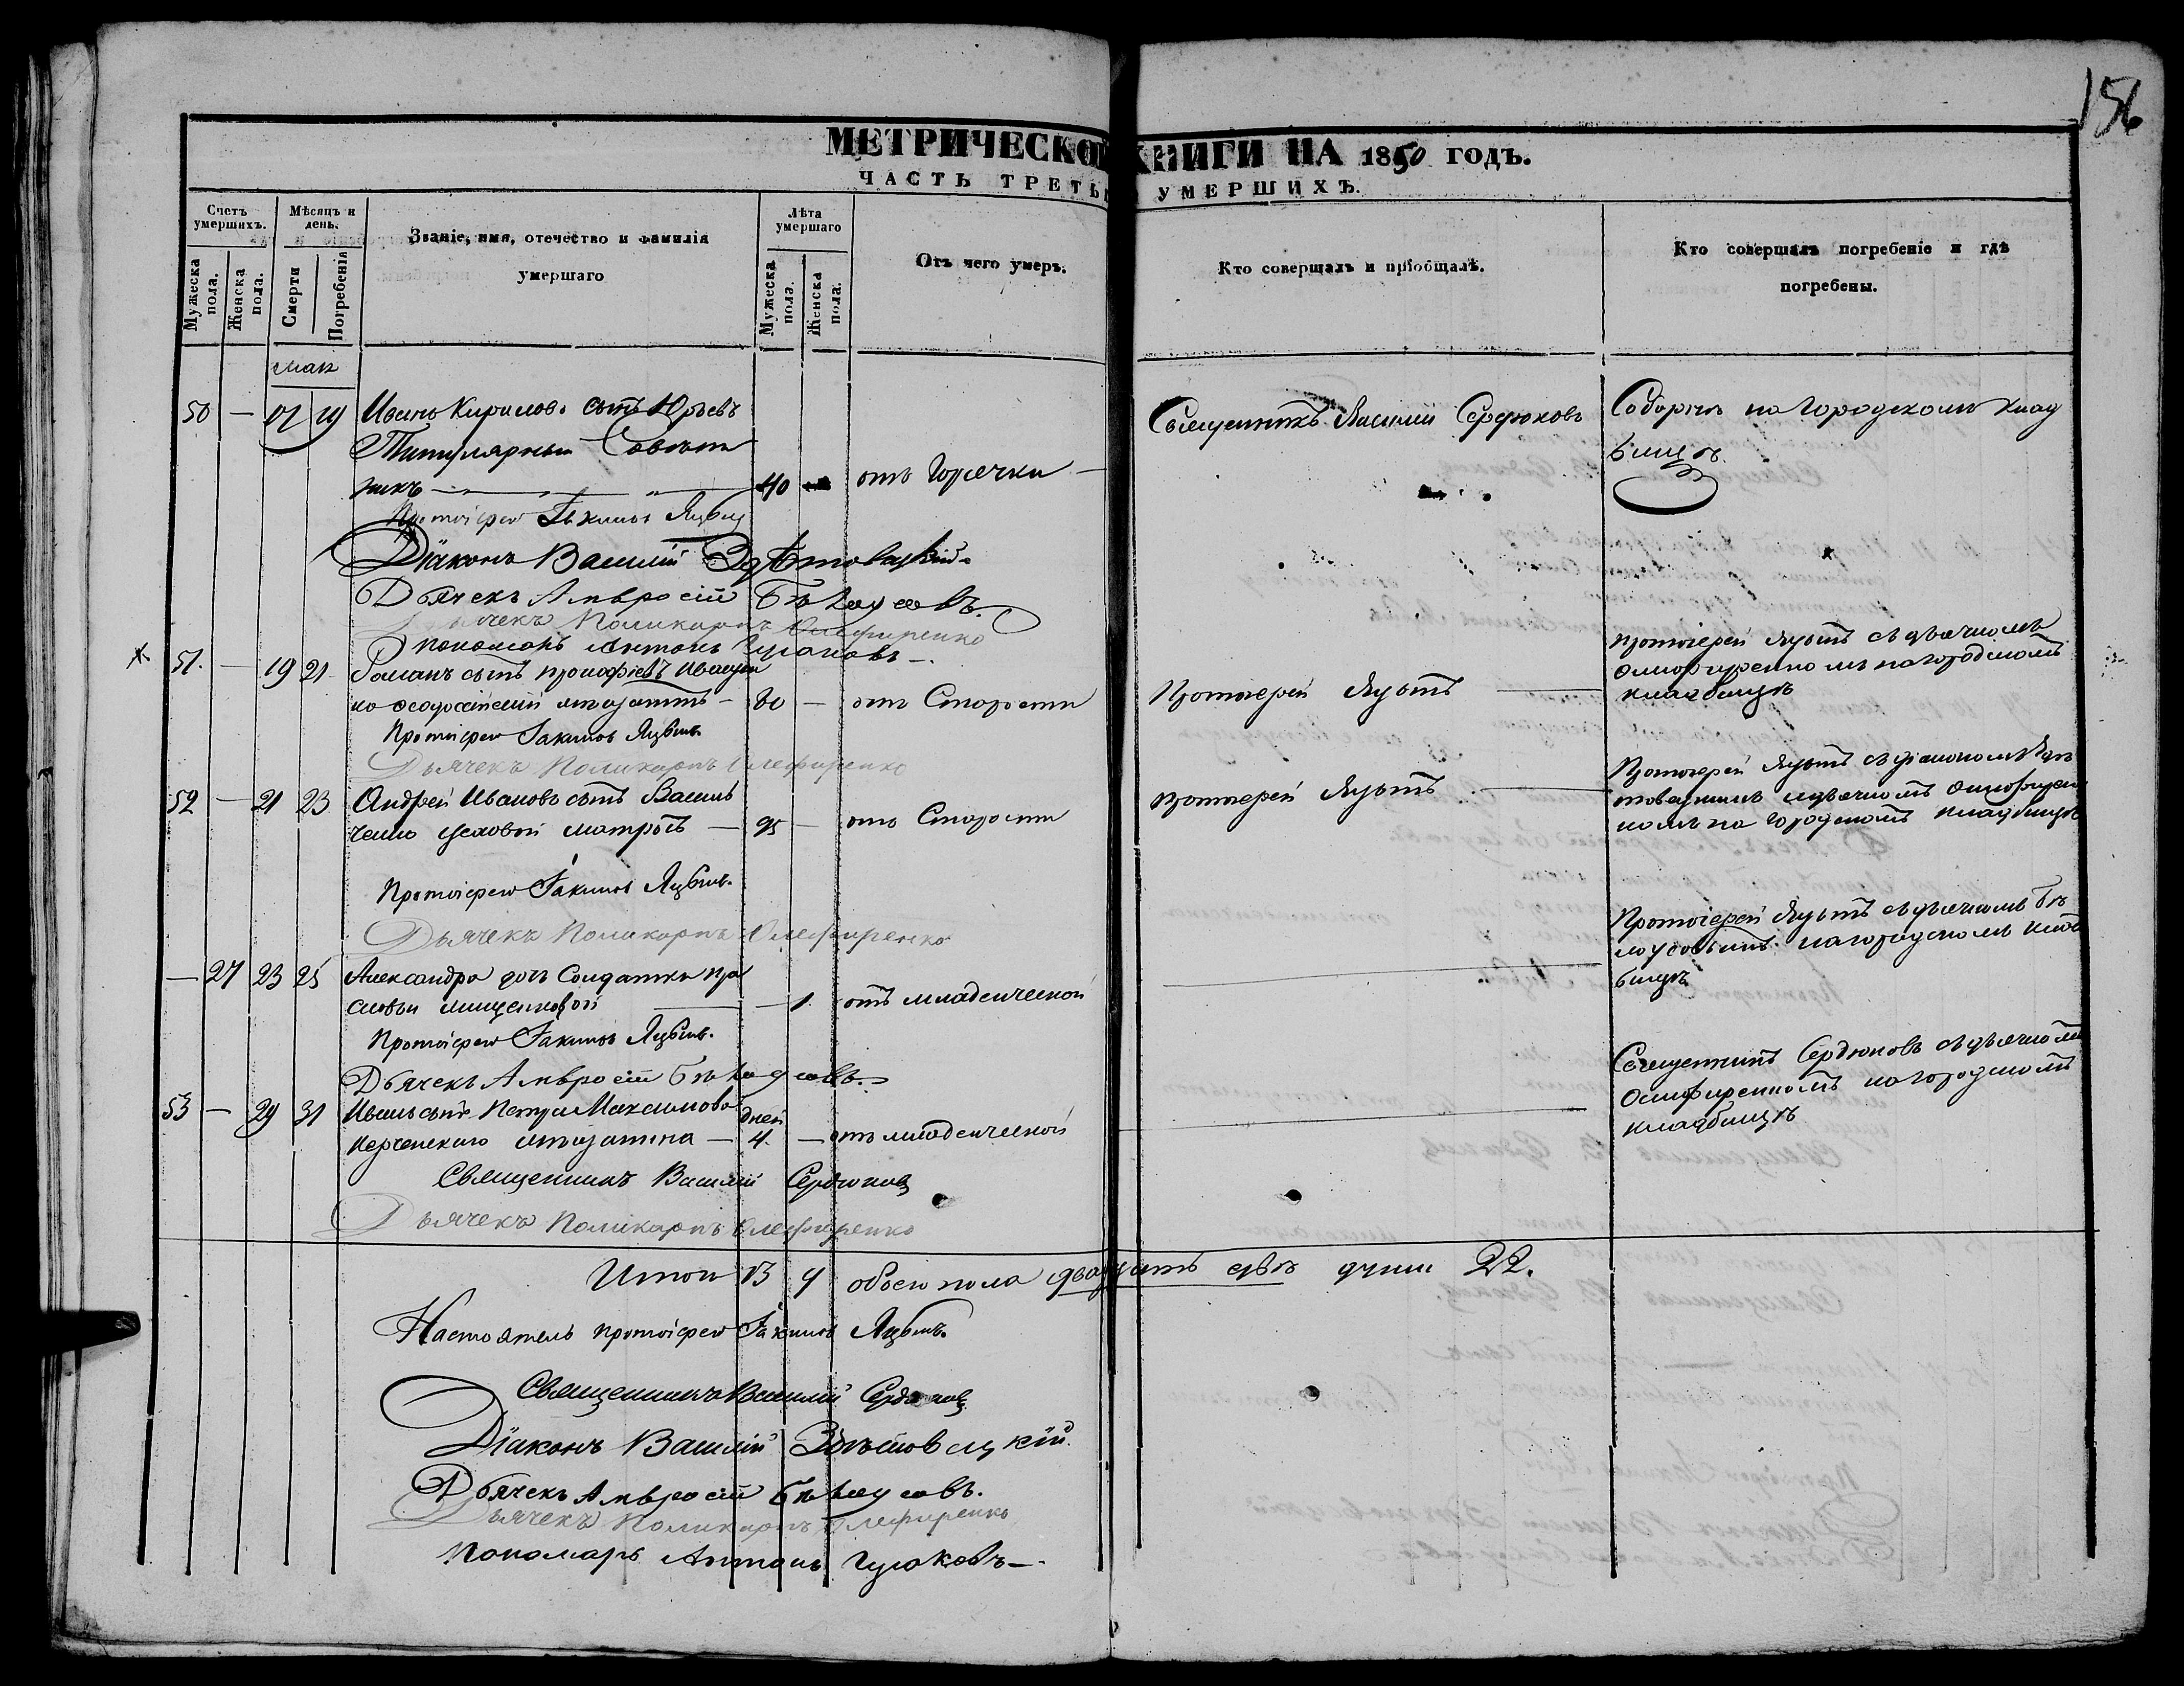 156
МЕТРИЧЕСКОЙ КНИГИ НА 1850 ГОДЪ.
ЧАСТЬ ТРЕТЬЯ УМЕРШИХЪ.
Счетъ умершихъ.
Мужеска пола.
Женска пола.
Мѣсяцъ и день.
Смерти
Погребенія
Званіе, имя, отечество и фамилія умершаго
Лѣта умершаго
Мужеска пола.
Женска пола.
Отъ чего умеръ.
Кто совершалъ и пріобщалъ.
Кто совершалъ погребеніе и гдѣ погребены.
Маи
50 — 19 Иванъ Кирилов. сынъ Юрьевъ
Титулярный Совѣт
никъ — 40 — отъ Горячки —
Священникъ Василій Сердюковъ
Соборнѣ на Городскомъ клад
бищѣ
Протоіерей Іакимъ
Діаконъ Василій Здѣтовецкій.
Дьячекъ Амвросій Бѣлоусовъ.
Дьячекъ Поликарпъ Олефиренко
Пономарь Антонъ Гусаковъ —
51. — 19 21 Романъ сынъ Прокофіевъ Иващен
ко феодосійскій мѣщанинъ — 80 — отъ Старости
Протоіерей —
Протоіерей съ дьячкомъ
Олефиренкомъ на городскомъ
кладбищѣ
Протоіерей Іакимъ
Дьячекъ Поликарпъ Олефиренко
52 — 21 23 Андрей Ивановъ сынъ Василь
ченко матросъ — 95 — отъ Старости
Протоіерей —
Протоіерей съ діакономъ Здѣ
товецкимъ и дьячкомъ Олефирен
комъ на городскомъ кладбищѣ
Протоіерей Іакимъ
Дьячекъ Поликарпъ Олефиренко
— 27 23 25 Александра дочь Солдатки Пра
сковьи Мищенковой — 1. отъ младенческой
Протоіерей съ дьячкомъ Бѣ
лоусовымъ на городскомъ клад
бищѣ
Протоіерей Іакимъ
Дьячекъ Амвросій Бѣлоусовъ.
53 — 29 31 Иванъ сынъ Петра Максимова
дней
Керченскаго мѣщанина — 4. — отъ младенческой
Священникъ Сердюковъ съ дьячкомъ
Олефиренкомъ на городскомъ
кладбищѣ
Священникъ Василій Сердюковъ
Дьячекъ Поликарпъ Олефиренко
Итого 13 9 обоего пола двадцать двѣ души 22.
Настоятель протоіерей Іакимъ
Священникъ Василій Сердюковъ
Діаконъ Василій Здѣтовецкій.
Дьячекъ Амвросій Бѣлоусовъ.
Дьячекъ Поликарпъ Олефиренко
Пономарь Антонъ Гусаковъ —